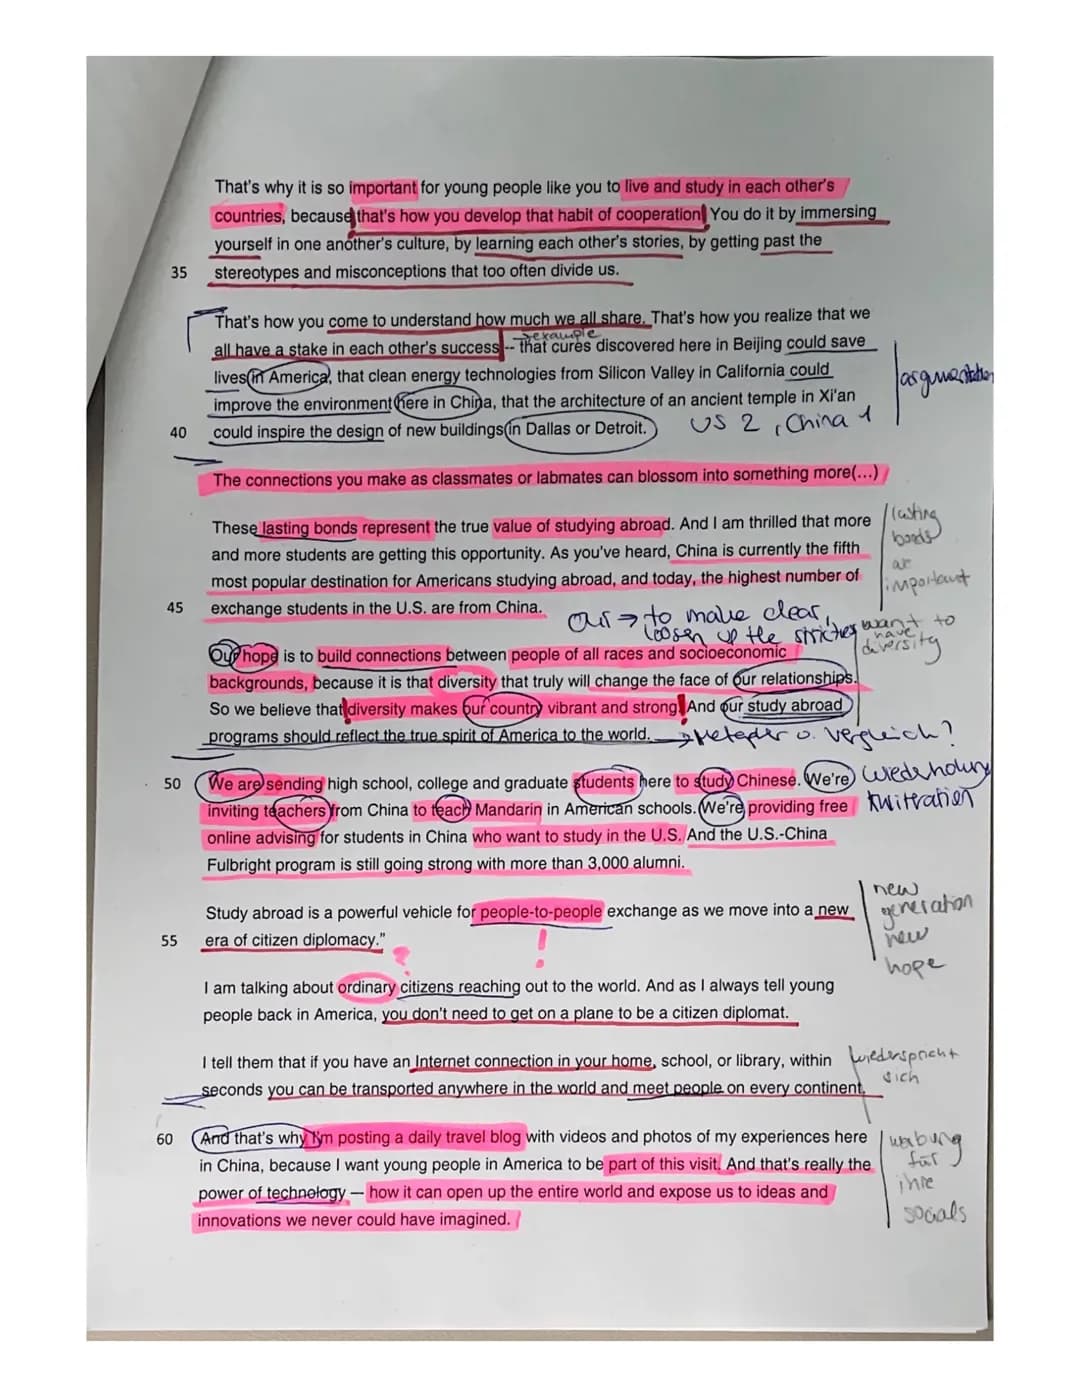 That's why it is so important for young people like you to live and study in each other's
countries, because that's how you develop that habit of cooperation. You do it by immersing
yourself in one another's culture, by learning each other's stories, by getting past the
35 stereotypes and misconceptions that too often divide us.
That's how you come to understand how much we all share. That's how you realize that we
example
all have a stake in each other's success -- that cures discovered here in Beijing could save
lives in America, that clean energy technologies from Silicon Valley in California could
argumentation
improve the environment here in China, that the architecture of an ancient temple in Xi'an
40 could inspire the design of new buildings in Dallas or Detroit. US 2, China 1
The connections you make as classmates or labmates can blossom into something more(...)
These lasting bonds represent the true value of studying abroad. And I am thrilled that more
and more students are getting this opportunity. As you've heard, China is currently the fifth
most popular destination for Americans studying abroad, and today, the highest number of
45 exchange students in the U.S. are from China.
lasting
bonds
are
important
our → to make clear,
loosen up the
want to
have
diversity
Our hope is to build connections between people of all races and socioeconomic
backgrounds, because it is that diversity that truly will change the face of our relationships.
So we believe that diversity makes our country vibrant and strong. And our study abroad
programs should reflect the true spirit of America to the world. → Metapher o. Vergleich?
50 We are sending high school, college and graduate students here to study Chinese. We're
Wiederholung
inviting teachers from China to teach Mandarin in American schools. We're providing free
online advising for students in China who want to study in the U.S. And the U.S.-China
Fulbright program is still going strong with more than 3,000 alumni.
Study abroad is a powerful vehicle for people-to-people exchange as we move into a new
55 era of citizen diplomacy."
new
generation
new
hope
? !
I am talking about ordinary citizens reaching out to the world. And as I always tell young
people back in America, you don't need to get on a plane to be a citizen diplomat.
I tell them that if you have an Internet connection in your home, school, or library, within
seconds you can be transported anywhere in the world and meet people on every continent.
wiederspricht
sich
60 And that's why I'm posting a daily travel blog with videos and photos of my experiences here
in China, because I want young people in America to be part of this visit. And that's really the
power of technology — how it can open up the entire world and expose us to ideas and
innovations we never could have imagined.
werbung
für
ihre
socials